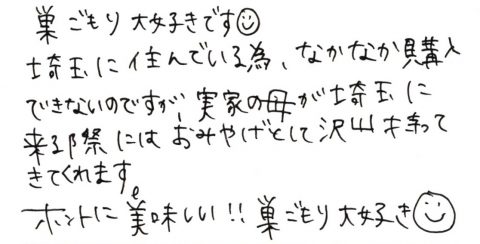 巣ごもり大好きです☺
埼玉に住んでいる為、なかなか購入
できないのですが、実家の母が埼玉に
来る際にはおみやげとして沢山持って
きてくれます。
ホントに美味しい!!巣ごもり大好き☺